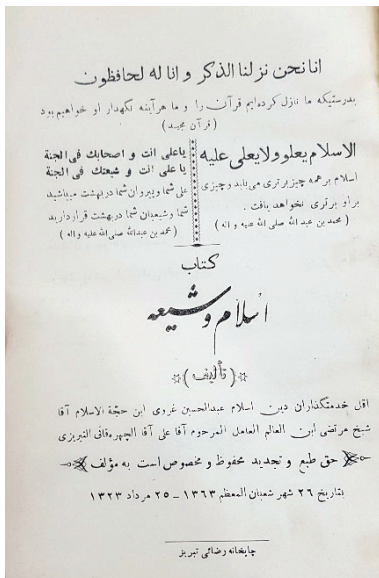 انا نحن نزلنا الذکر و انا له لحافظون
بدرستیکه ما نازل کرده‌ایم قرآن را و ما هر آینه نگهدار او خواهیم بود
(قرآن مجید)
الاسلام یعلو ولا یعلی علیه
اسلام بر همه چیز برتری می یابد و چیزی
بر او برتری نخواهد یافت .
( محمد بن عبدالله صلی الله علیه و اله )
یا علی انت و اصحابك فی الجنة
یا علی انت و شیعتك فی الجنة
علی شما و پیروان شما در بهشت میباشید
شما و شیعیان شما در بهشت قرار دارید
( محمد بن عبدالله صلی الله علیه و اله )
کتاب
اسلام و شیعه
( تألیف )
اقل خدمتگذاران دین اسلام عبدالحسین غروی ابن حجة الاسلام آقا
شیخ مرتضی ابن العالم العامل المرحوم آقا علی آقا الچهرهقانی التبریزی
حق طبع و تجدید محفوظ و مخصوص است به مؤلف
بتاریخ ۲۶ شهر شعبان المعظم ۱۳۶۳ - ۲۵ مرداد ۱۳۲۳
چاپخانه رضائی تبریز